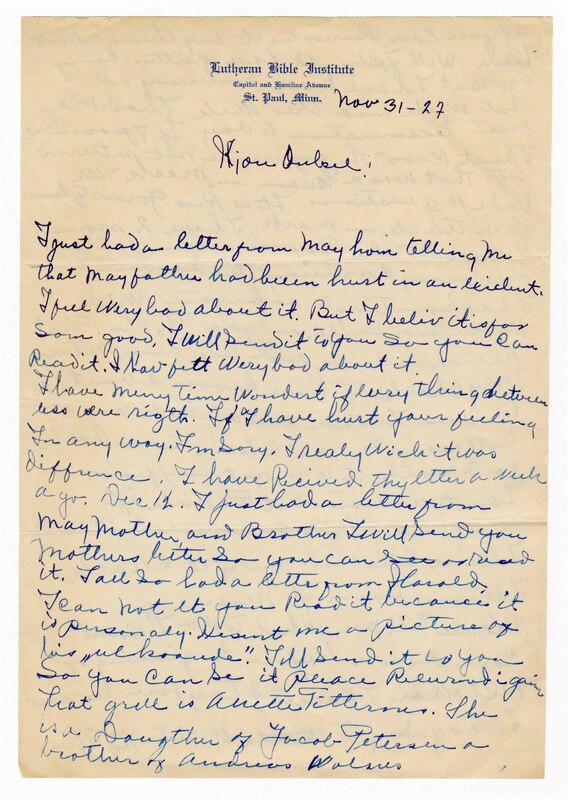 Lutheran Bible Institute
Capitol and Hamline Avenue
St. Paul, Minn.
Nov 31-27
Kjære Onkel!
I just had a letter from May hom telling me
that May father had been hurt in an
I ful very bad about it. But I beliv it is for
som good. I Will Send it to you So you Can
Read it. I hav felt Very bad about it.
I have meny time Wondert if every thing between
uss were rigth. If I have hurt your feeling
In any way. I'm Sory. I realy Wich it was
diffrence. I have Recived thy letter a Week
a go. Dec 12. I just had a letter from
May Mother, and Brother I Will Send you
Mothers letter So you can read
it. I all So had a lettr from Harald
I can not let you Read it because it
is personaly. He sent me a picture of
his „ I'll Send it to you
So you Can Se it Pleace Return it igain
that grill is Titterons. She
is a Daugther of Jacob Petersen a
brother of Andreas